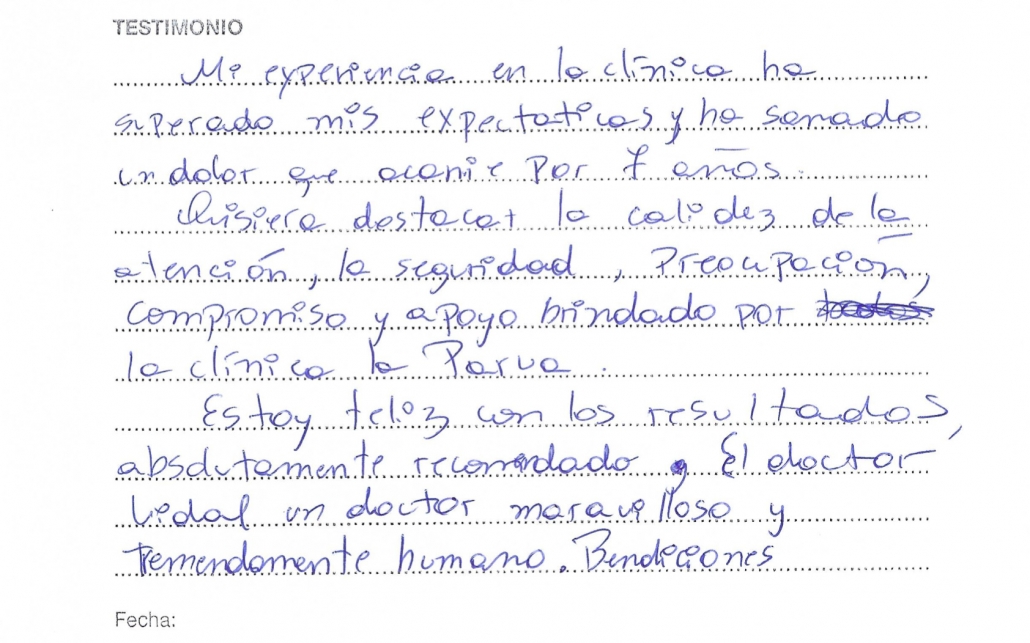 TESTIMONIO
Mi experiencia en la clínica ha
superado mis expectaticas y ha sanado
un dolor que acarrie por 7 años.
Quisiera destacar la calidez de la
atención, la seguridad, Preocupación,
compromiso y apoyo brindado por
la clínica la Parva.
Estoy feliz con los resultados,
absolutamente recomendado. El doctor
Vidal un doctor maravilloso y
tremendamente humano. Bendiciones
Fecha: